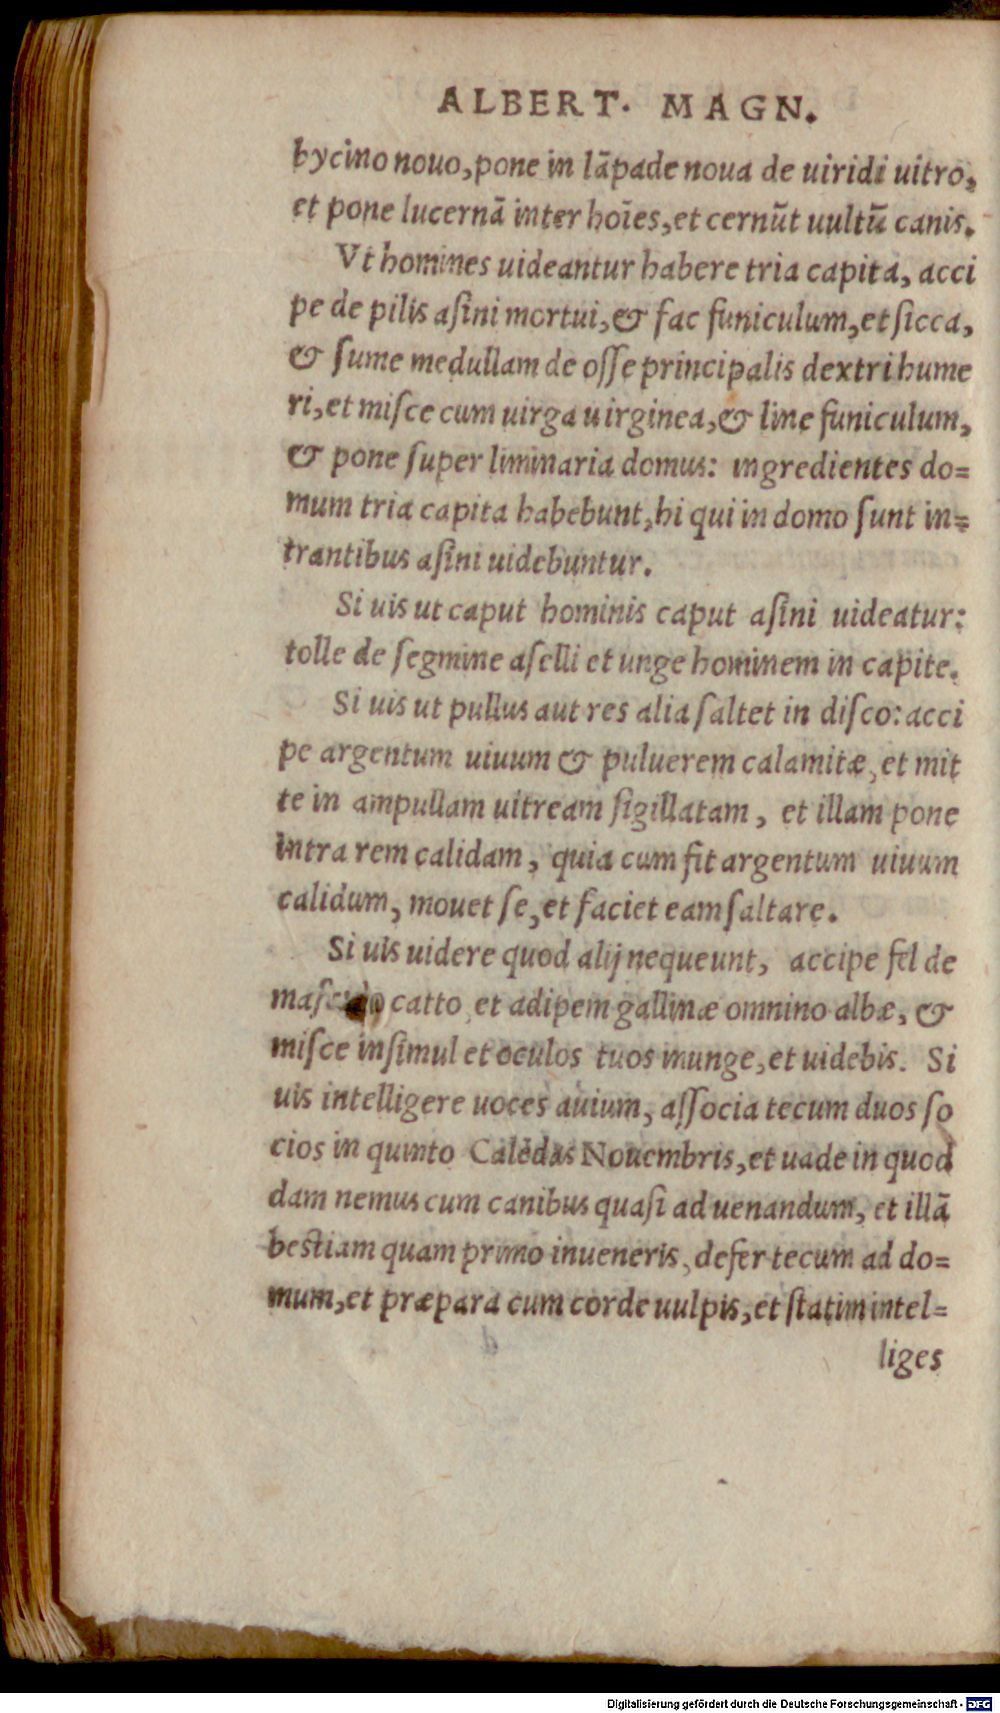 ALBERT. MAGN.
bycino nouo, pone in lāpade noua de uiridi uitro,
et pone lucernā inter hoīes, et cernūt uultū canis.
Vt homines uideantur habere tria capita, acci
pe de pilis aſini mortui, & fac funiculum, et ſicca,
& ſume medullam de oſſe principalis dextri hume
ri, et miſce cum uirga uirginea, & line funiculum,
& pone ſuper liminaria domus: ingredientes do=
mum tria capita habebunt, hi qui in domo ſunt in=
trantibus aſini uidebuntur.
Si uis ut caput hominis caput aſini uideatur:
tolle de ſegmine aſelli et unge hominem in capite.
Si uis ut pullus aut res alia ſaltet in diſco: acci
pe argentum uiuum & puluerem calamitæ, et mit
te in ampullam uitream ſigillatam, et illam pone
intra rem calidam, quia cum fit argentum uiuum
calidum, mouet ſe, et faciet eam ſaltare.
Si uis uidere quod alij nequeunt, accipe fel de
catto, et adipem gallinæ omnino albæ, &
miſce inſimul et oculos tuos inunge, et uidebis. Si
uis intelligere uoces auium, aſſocia tecum duos ſo
cios in quinto Calēdas Nouembris, et uade in quod
dam nemus cum canibus quaſi ad uenandum, et illā
beſtiam quam primo inueneris, defer tecum ad do=
mum, et præpara cum corde uulpis, et ſtatim intel=
liges
Digitalisierung gefördert durch die Deutsche Forschungsgemeinschaft - DFG